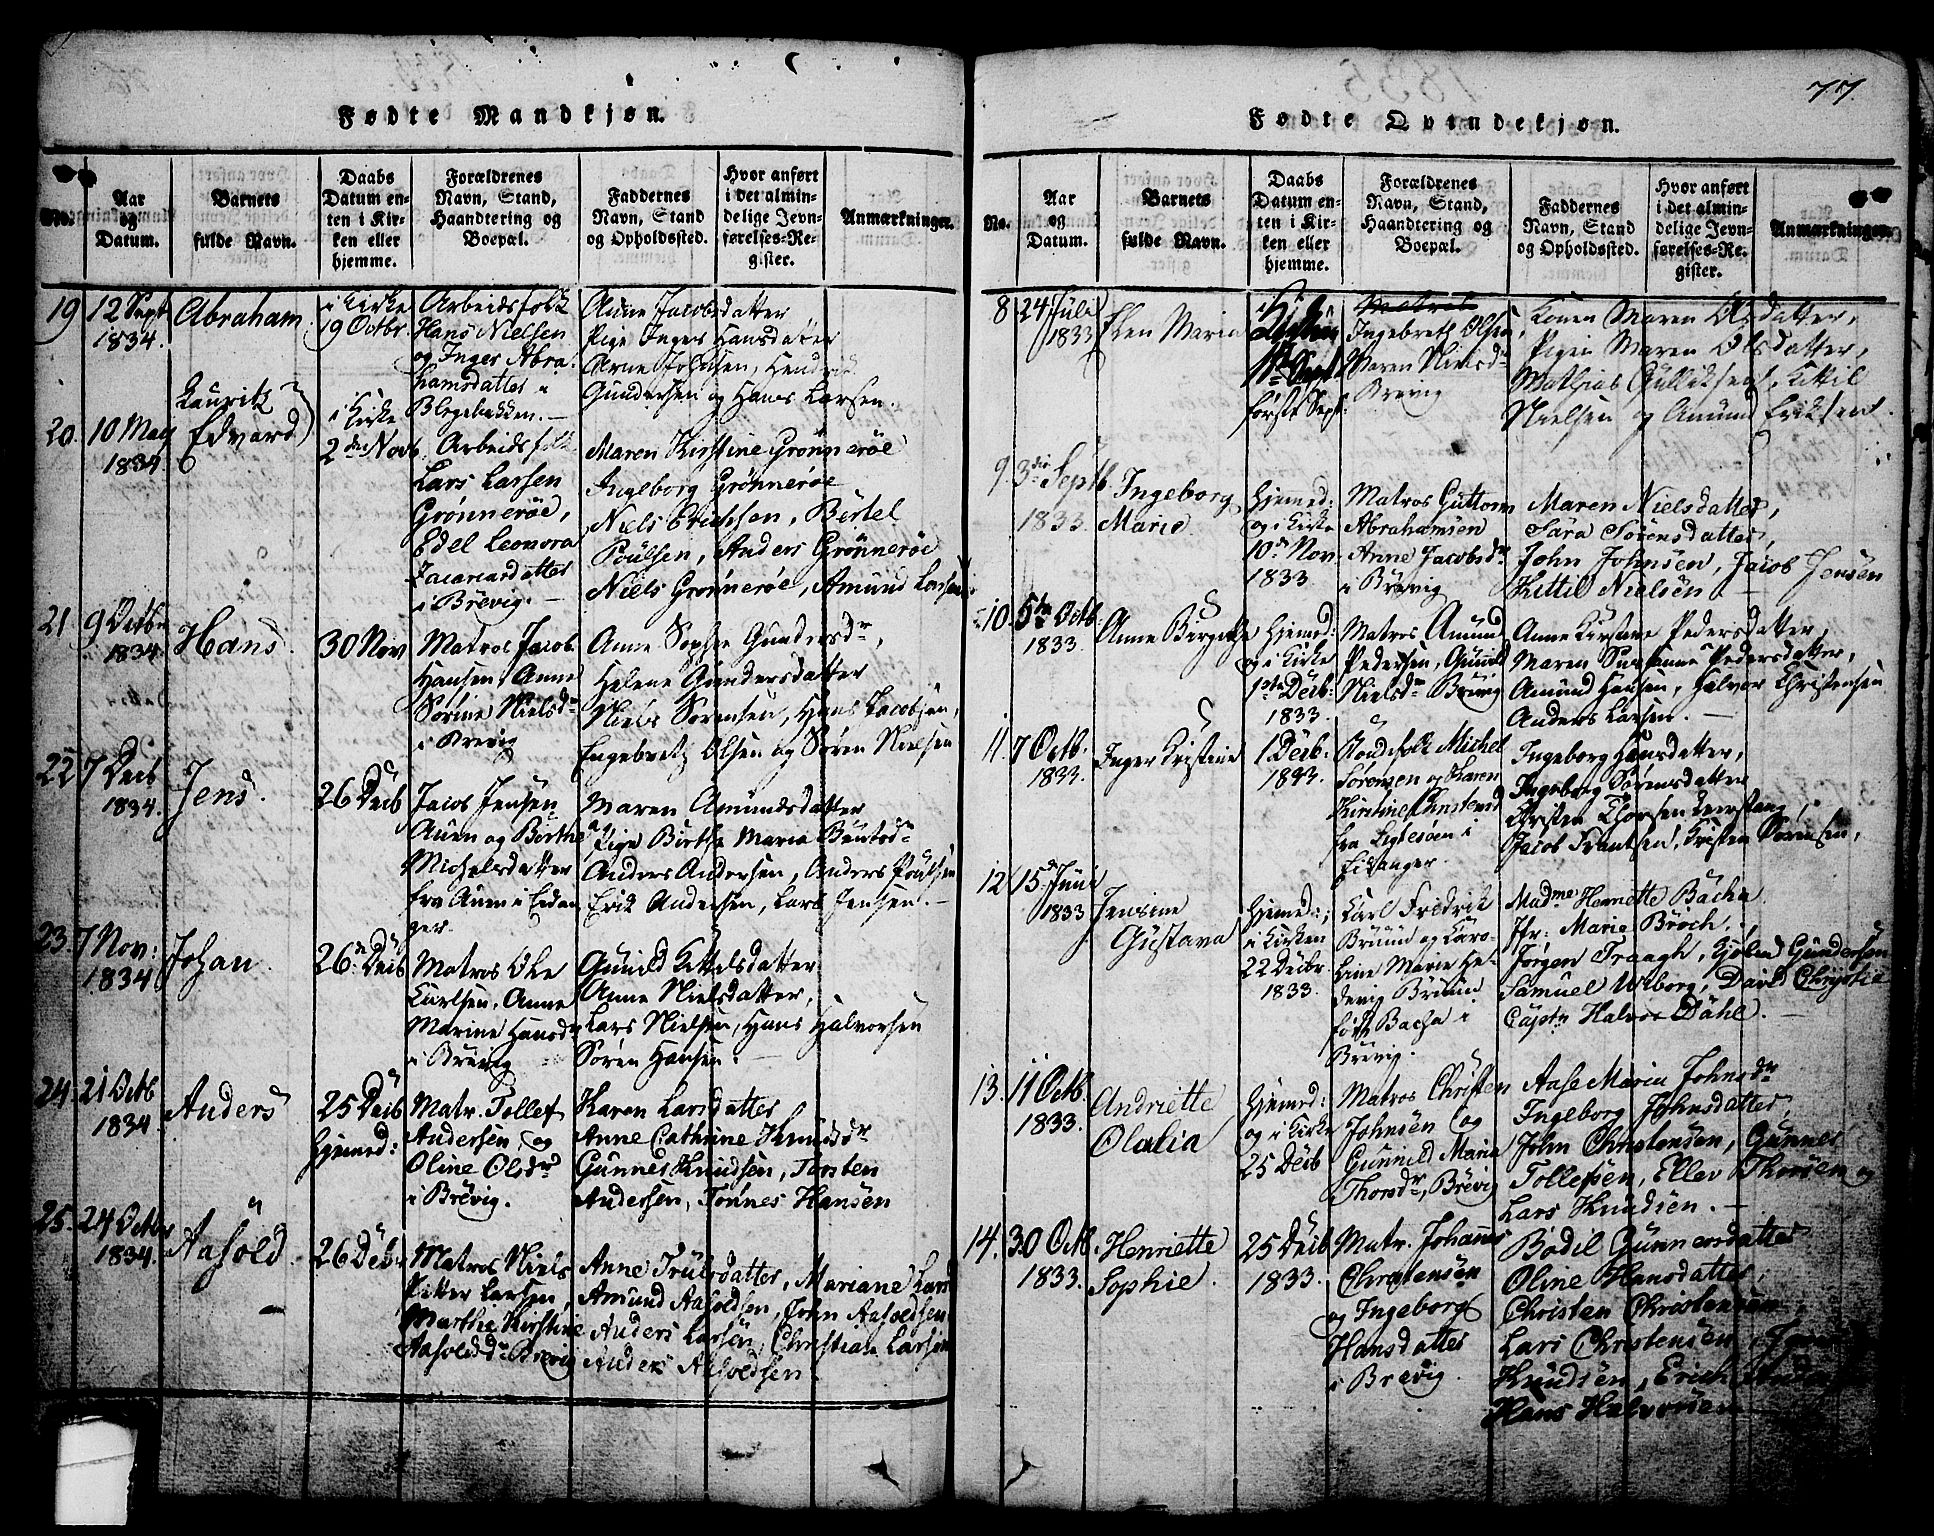 Fødte Mandkjøn.
No.
Aar
og
Datum.
Barnets
fulde Navn.
Daabs
Datum en-
ten i Kir-
ken eller
hjemme.
Forældrenes
Navn, Stand,
Haandtering og
Boepæl.
Faddernes
Navn, Stand
og Opholdssted.
Hvor anført
i det almin-
delige Jevn-
førelses-Re-
gister.
Anmærkninger.
19
12 Sept
1834.
Abraham
i Kirke
19 Octbr.
Arbeidsfolk
Hans Nielsen
og Inger Abra-
hamsdatter
Blegebakken.
Anne Jacobsdatter
Pige Inger Hansdatter
Arne Johnsen, Hendrik
Gundersen og Hans Larsen.
20.
10 May
1834
Lauritz
Edvard
i Kirke
2den Novb
Arbeidsfolk
Lars Larsen
Grønnerøe,
Edel Leonora
Zacariasdatter
i Brevig.
Maren Kirstine Grønnerøe
Ingeborg Grønnerøe
Niels Erichsen, Bertel
Poulsen, Anders Grønnerøe
Niels Grønnerøe, Amund Larsen
21
9 Octbr
1834
Hans.
30 Nov
Matros Jacob
Hansen, Anne
Sørine Nielsdr
i Brevig
Anne Sophie Gundersdr,
Helene Gundersdatter
Niels Sørensen, Hans Jacobsen,
Engebretz Olsen og Søren Nielsen
22
7 Decb
1834.
Jens.
26 Decb
Jacob Jensen
Auen og Berthe
Michelsdatter
fra Auen i Eidan-
ger.
Maren Amundsdatter
Pige Birthe Maria Bentsdr
Anders Andersen, Anders Poulsen
Erik Andersen, Lars Jensen.
23.
7 Nov:
1834
Johan
26de Decb
Matros Ole
Carlsen, Anne
Marine Hansdr
i Brevig
Gunild Kittelsdatter
Anne Nielsdatter,
Lars Nielsen, Hans Halvorsen
Søren Hansen.
24.
21 Octb
1834.
Anders
25 Decb
Hjemed:
Matr. Tollef
Andersen, og
Oline Olsdr
i Brevig.
Karen Larsdatter
Anne Cathrine Knudsdr
Gunnes Knudsen, Torsten
Andersen, Tonnes Hansen
25.
24 Octbr
1834.
Aasold.
26 Decbr
Matros Niels
Petter Larsen,
Marthe Kirstine
Aasoldsdr Brevig
Anne Trulsdatter, Mariane Lars
Amund Aasoldsen, John Aasoldsen
Anders Larsen, Christian Larsen
Anders Aasoldsen.
77.
Fødte Qvindekjøn.
No.
Aar
og
Datum.
Barnets
fulde Navn.
Daabs
Datum en-
ten i Kir-
ken eller
hjemme.
Forældrenes
Navn, Stand,
Haandtering og
Boepæl.
Faddernes
Navn, Stand
og Opholdssted.
Hvor anført
i det almin-
delige Jevn-
førelses-Re-
gister.
Anmærkninger.
8
24 Juli
1833
Elen Maria
første Sept.
Ingebreth Olsen,
Maren Nielsdr
Brevig
Konen Maren Olsdatter,
Pigen Maren Olsdatter,
Mathias Gulliksen, Kittil
Nielsen og Amund Eriksen.
9.
3die Septb
1833.
Ingeborg
Marie
Hjemed:
og i Kirke
10de Nov
1833
Matros Guttorm
Abrahamsen
Anne Jacobsdr
i Brevig
Maren Nielsdatter,
Sara Sørensdatter,
John Johnsen, Jacob Jensen
Kittil Nielsen.
10.
5te Octb.
1833.
Anne Birgithe
Hjemed:
og i Kirke
1ste Decb.
1833.
Matros Amund
Pedersen, Gunild
Nielsdr Brevig
Anne Kirstine Pedersdatter,
Maren Susanne Pedersdatter,
Amund Hansen, Halvor Christensen
Anders Larsen.
11.
7 Octb.
1833.
Inger Kristine
1 Decb.
1833.
Bondefolk Michel
Sørensen og Karen
Kirstine Christensd
fra Ligtesøen i
Eidanger.
Ingeborg Hansdatter,
Ingeborg Sørensdatter
Christen Thorsen Leerstang,
Jacob Frantsen, Kristen Sørensen,
12
15de Juni
1833
Jensine
Gustava
Hjemed:,
i Kirken
22 Decbr.
1833.
Carl Fredrik
Bruun og Karo-
line Marie He-
devig Bruun
født Bacha i
Brevig.
Madme Henriette Bacha
Jfr: Marie Broch,
Jørgen Traagh, Gjølm Gundersen
Samuel Wiborg, David Chrystie
Captn Halvor Dahl.
13.
11 Octb.
1833.
Andriette
Olalia
Hjemed:
og i Kirke
25 Decb
Matros Christen
Johnsen og
Gunnild Maria
Thorsdr, Brevig
Aase Maria Johnsdr
Ingeborg Johnsdatter,
John Christensen, Gunnes
Tollefsen, Ellev Thorsen og
Lars Knudsen.
14.
30 Octb.
1833.
Henriette
Sophie.
25 Decb
1833.
Matr. Johannes
Christensen
og Ingeborg
Hansdatter
i Brevig.
Bodil Gunnersdatter
Oline Hansdatter,
Christen Christensen
Lars Christensen,
Knudsen, Erich
Hans Halvorsen